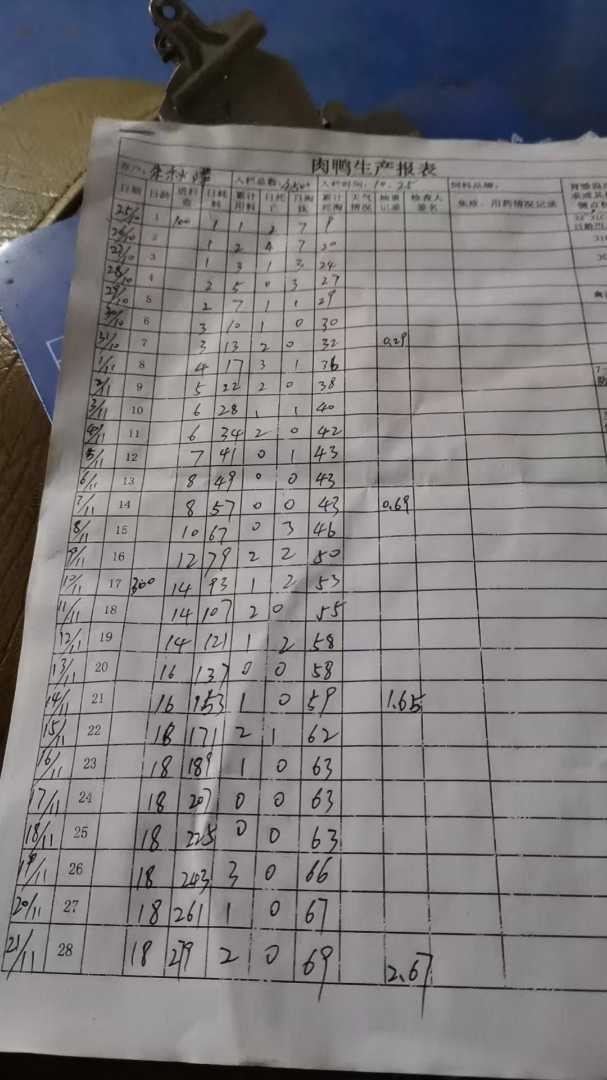 肉鸭生产报表
入栏总数: 入栏时间: 10.25 饲料品牌:
日期 日龄 进料 日耗料 累计用料 日死亡 日淘汰 累计死淘 天气情况 抽重记录 检查人签名 免疫、用药情况记录
25/10 1 100 1 1 2 7 9
26/10 2 1 2 4 7 20
27/10 3 1 3 1 3 24
28/10 4 2 5 0 3 27
29/10 5 2 7 1 1 29
30/10 6 3 10 1 0 30
31/10 7 3 13 2 0 32 0.29
1/11 8 4 17 3 1 36
2/11 9 5 22 2 0 38
3/11 10 6 28 1 1 40
4/11 11 6 34 2 0 42
5/11 12 7 41 0 1 43
6/11 13 8 49 0 0 43
7/11 14 8 57 0 0 43 0.69
8/11 15 10 67 0 3 46
9/11 16 12 79 2 2 50
10/11 17 300 14 93 1 2 53
11/11 18 14 107 2 0 55
12/11 19 14 121 1 2 58
13/11 20 16 137 0 0 58
14/11 21 16 153 1 0 59 1.65
15/11 22 18 171 2 1 62
16/11 23 18 189 1 0 63
17/11 24 18 207 0 0 63
18/11 25 18 225 0 0 63
19/11 26 18 243 3 0 66
20/11 27 18 261 1 0 67
21/11 28 18 279 2 0 69 2.67